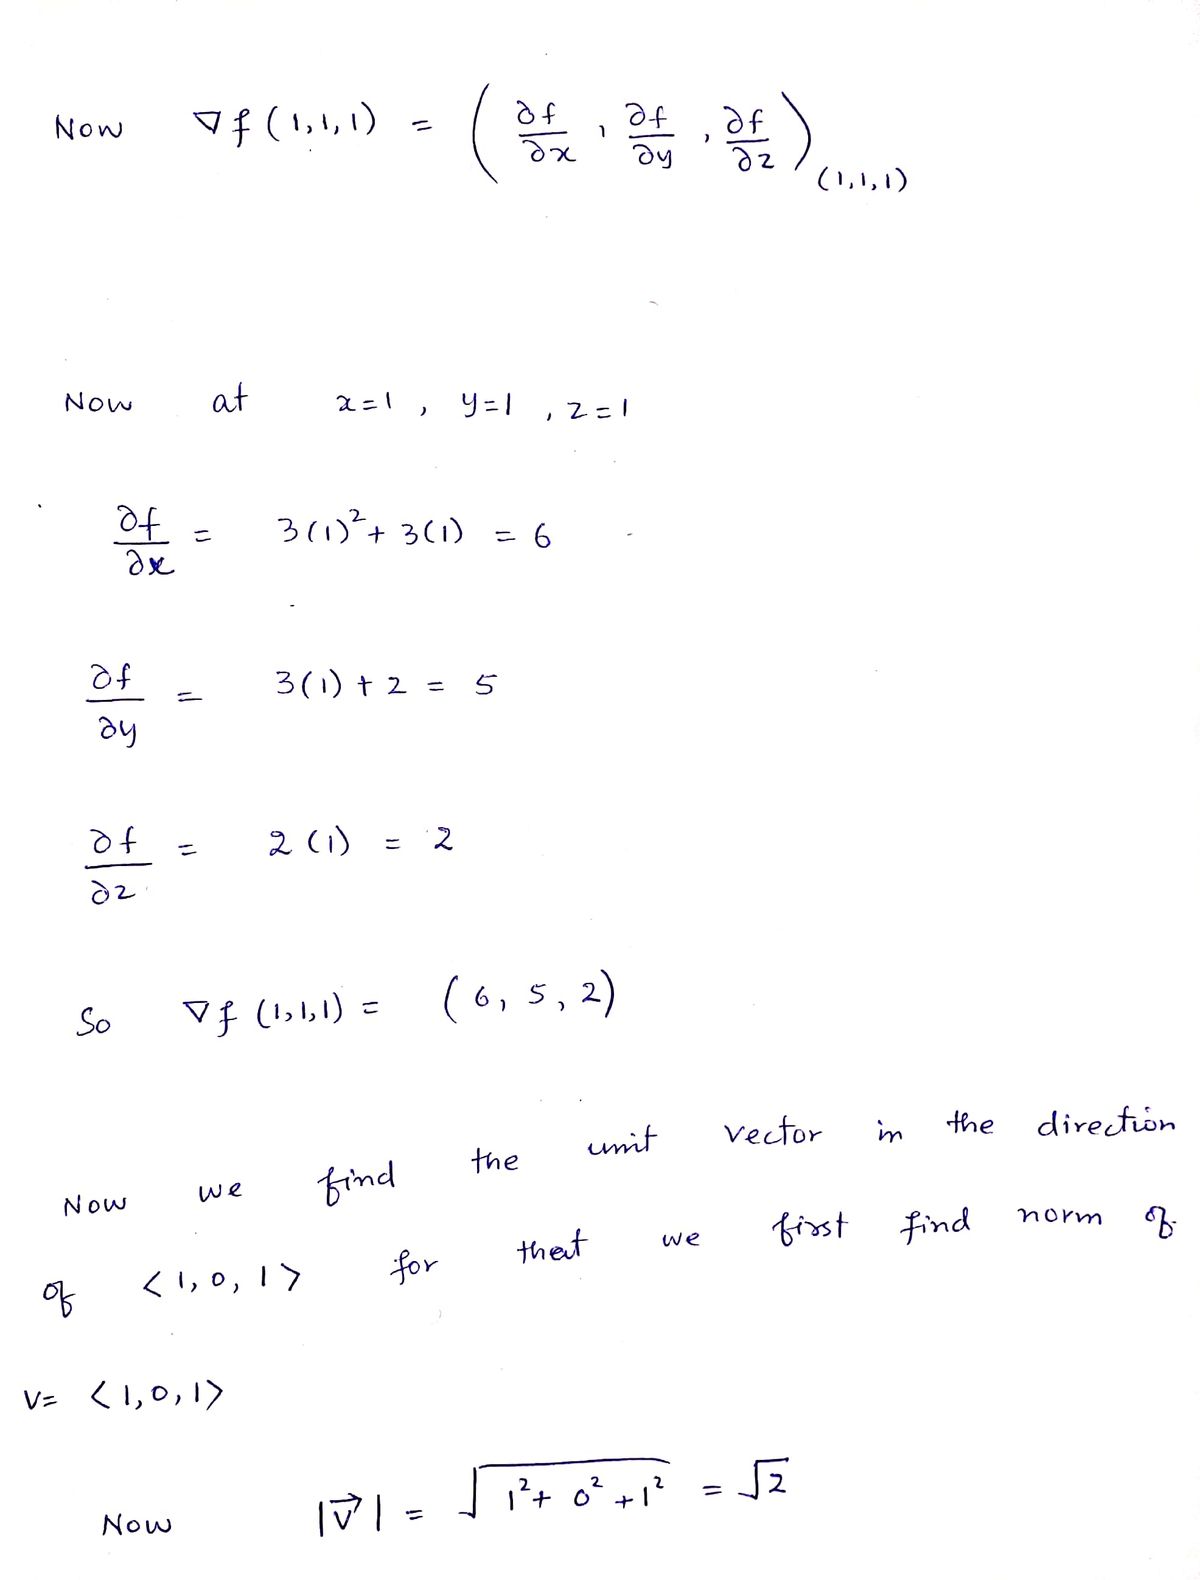 Now ∇f (1,1,1) = ( ∂f/∂x , ∂f/∂y , ∂f/∂z )(1,1,1)
Now at x=1 , y=1 , z=1
∂f/∂x = 3(1)²+ 3(1) = 6
∂f/∂y = 3(1) + 2 = 5
∂f/∂z = 2 (1) = 2
So ∇f (1,1,1) = ( 6, 5, 2)
Now we find the unit vector in the direction
of <1, 0, 1> for that we first find norm of
V= <1,0,1>
Now |v⃗| = √(1²+ 0² +1²) = √2